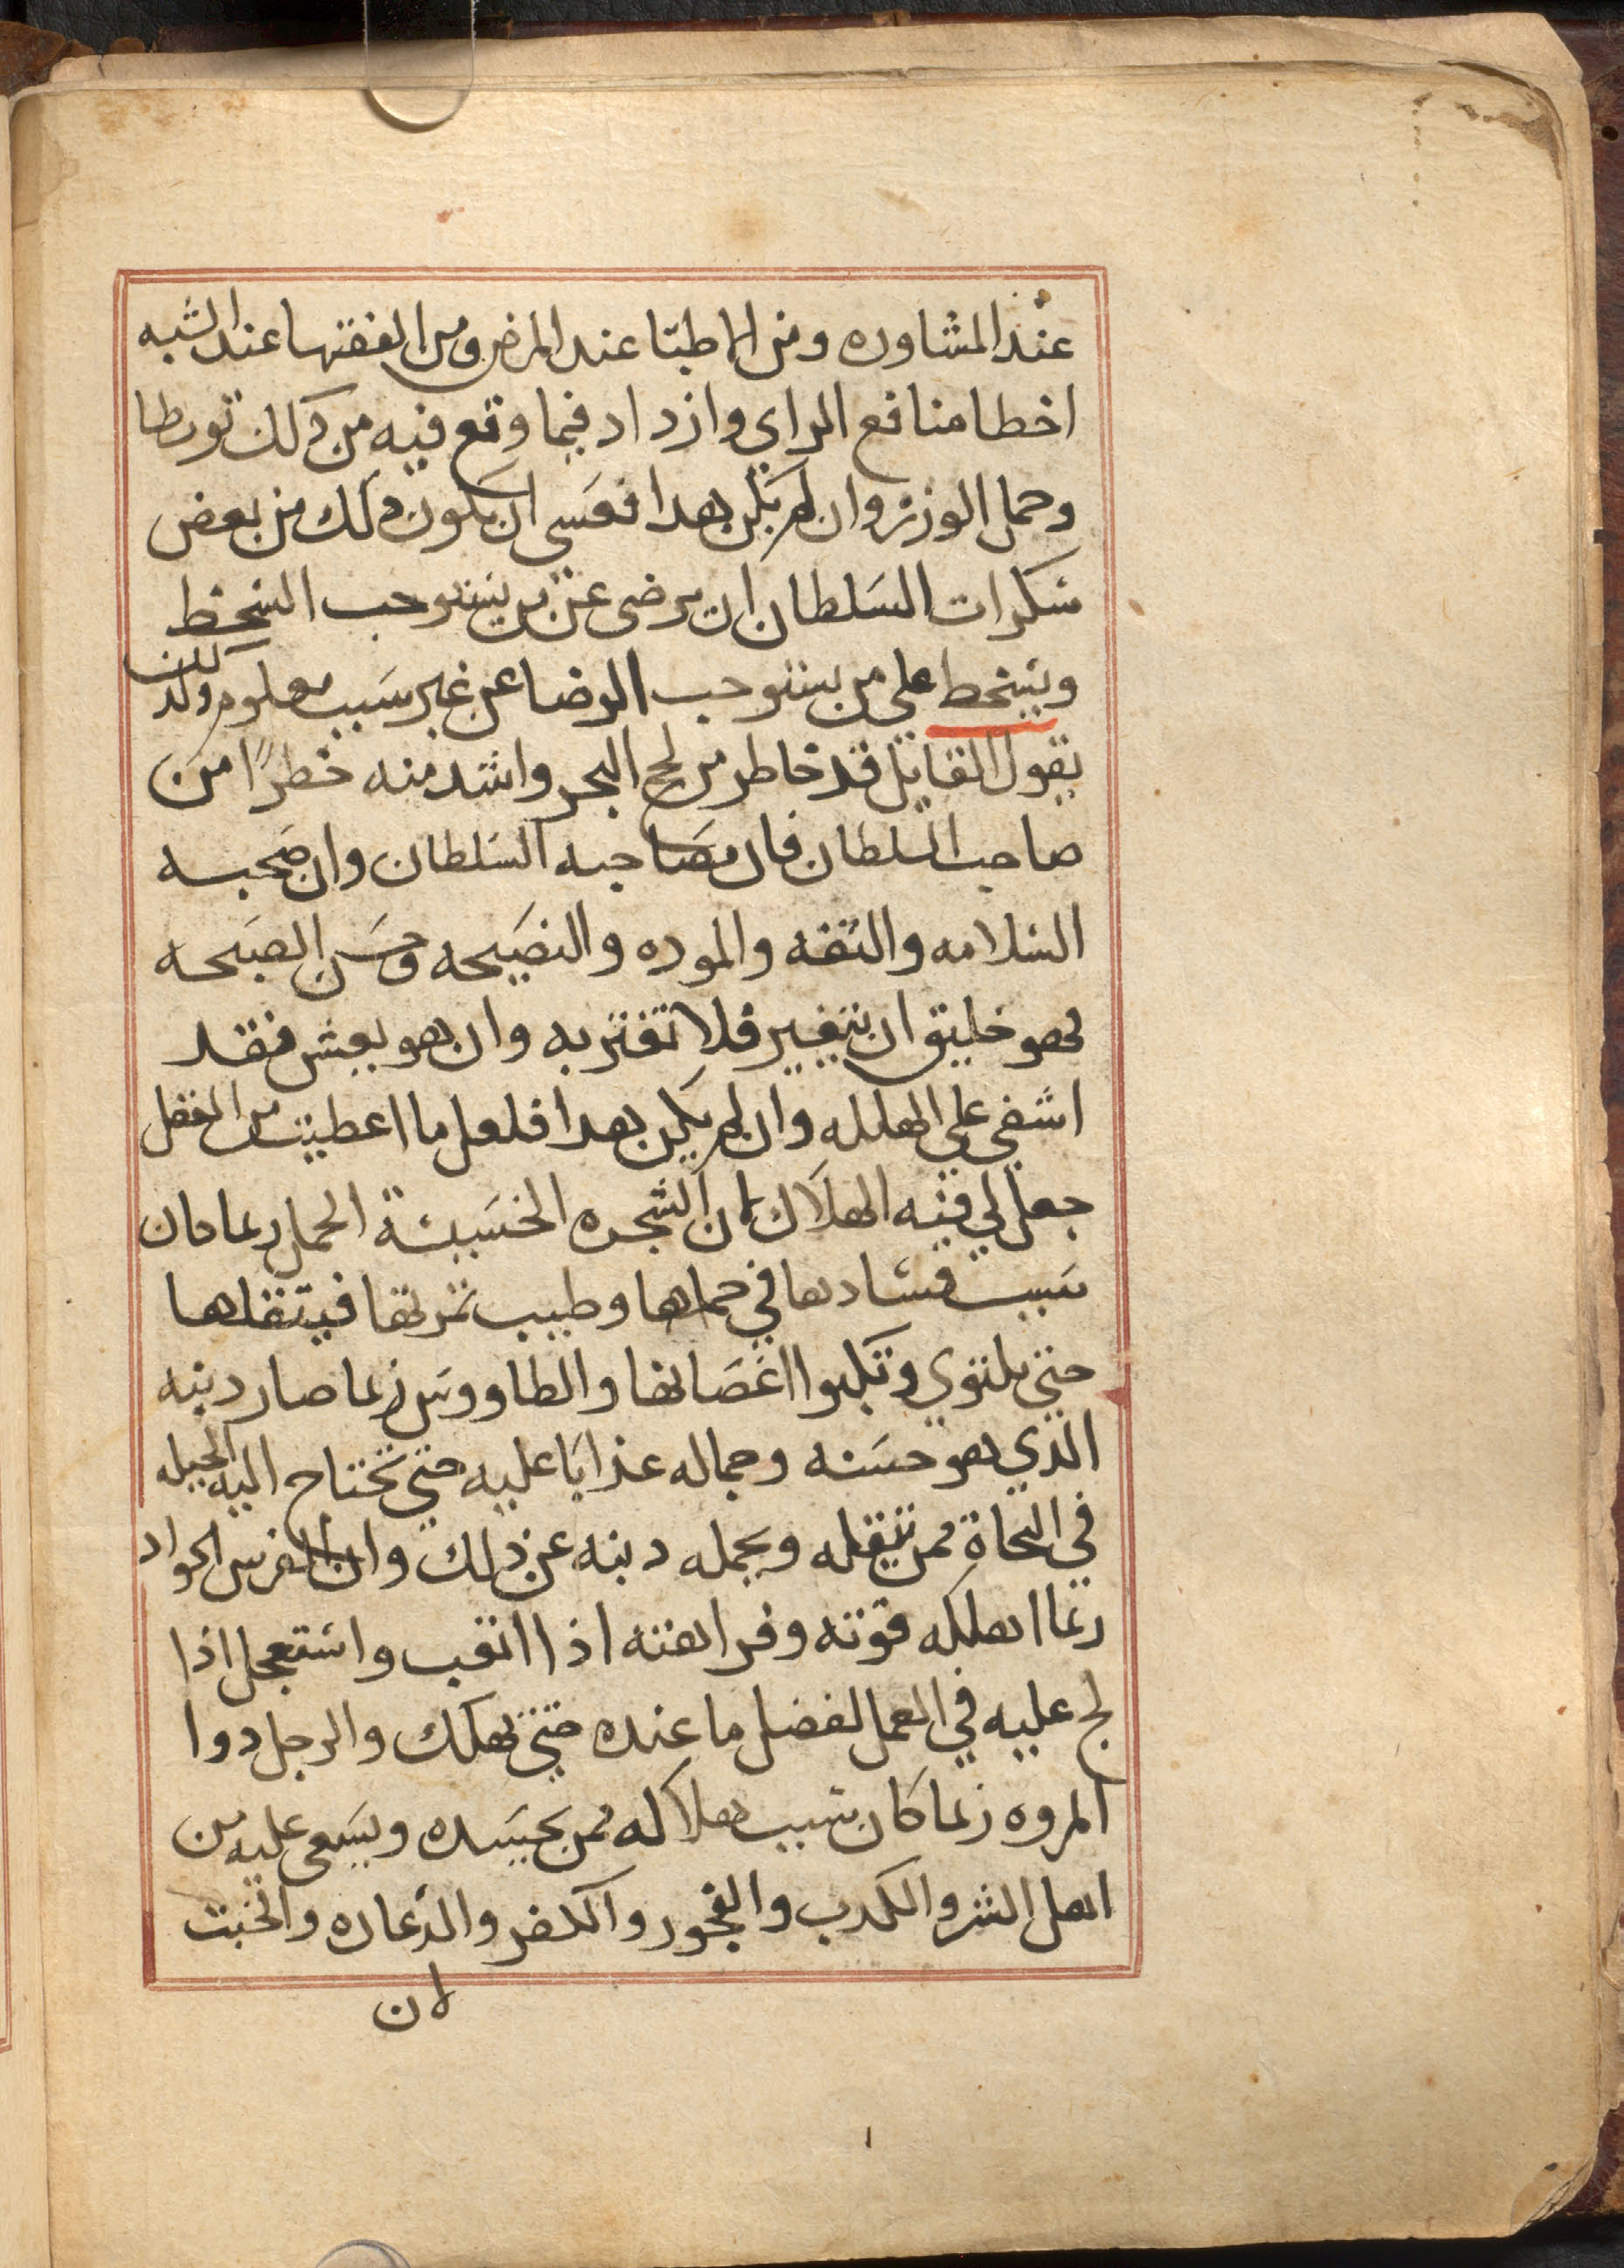 عند المشاوره ومن الاطبا عند المرض ومن الفقها عند الشبه
اخطا منافع الراي وازداد فيما وقع فيه من ذلك تورطا
وحمل الوزر وان لم يكن هدا فعسي ان يكون ذلك من بعض
سكرات السلطان ان يرضى عن من يستوجب السخط
ويسخط علي من يستوجب الرضا عن غير سبب معلوم وكذلك
يقول القايل قد خاطر من لجج البحر واشد منه خطرًا من
صاحب السلطان فان مصاحبه السلطان وان صحبه
السلامه والثقه والموده والنصيحه وحسن الصبحه
لهو خليق ان يتغير فلا تغتر به وان هو يعش فقد
اشفي علي الهلكه وان لم يكن هدا فلعل ما اعطيت من الفضل
جعل لي فيه الهلاك لان الشجره الحسيبة الحمل ربما كان
سبب فسادها في حملها وطيب ثمرتها فيثقلها
حتي يلتوي وتكبوا اغصانها والطاووس ربما صار دينه
الذي هو حسنه وجماله عذابا عليه حتي تحتاج اليه الحيله
في النجاة ممن يثقله ويحمله دينه عن ذلك وان الفرس الجواد
ربما اهلكه قوته وفراهته اذا اتعب واستعجل اذا
لج عليه في العمل لفضل ما عنده حتي يهلك والرجل دوا
المروه ربما كان سبب هلاكه ممن يحسده ويسعى عليه من
اهل الشر والكدب والفجور والكفر والدعاره والخبث
لان
١